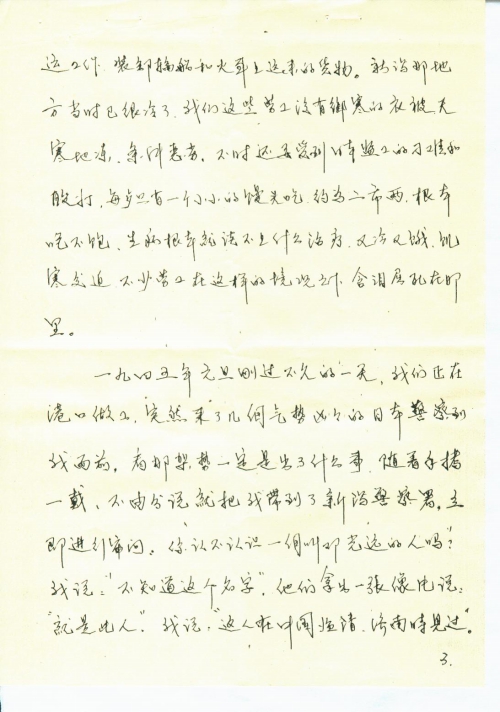 这工作。装卸轮船和火车上运来的货物。新泻那地
方当时已很冷了，我们这些劳工没有御寒的衣被天
寒地冻，条件恶劣，不时还要受到日本监工的刁难和
殴打，每歺只有一个小小的馒头吃，约为二市两，根本
吃不饱，生病根本就谈不上什么治疗，又冷又饿，饥
寒交迫，不少劳工在这样的境况之下，含泪屈死在那
里。
一九四五年元旦刚过不久的一天，我们正在
港口做工，突然来了几個气势凶凶的日本警察到
我面前，看那架势一定是出了什么事，随着手拷
一戴，不由分说就把我带到了新泻警察署，立
即进行审问。你认不认识一個叫邓光远的人吗？
我说："不知道这个名字"，他们拿出一张像片说：
"就是此人"。我说："这人在中国临清、济南時見过"。
3.